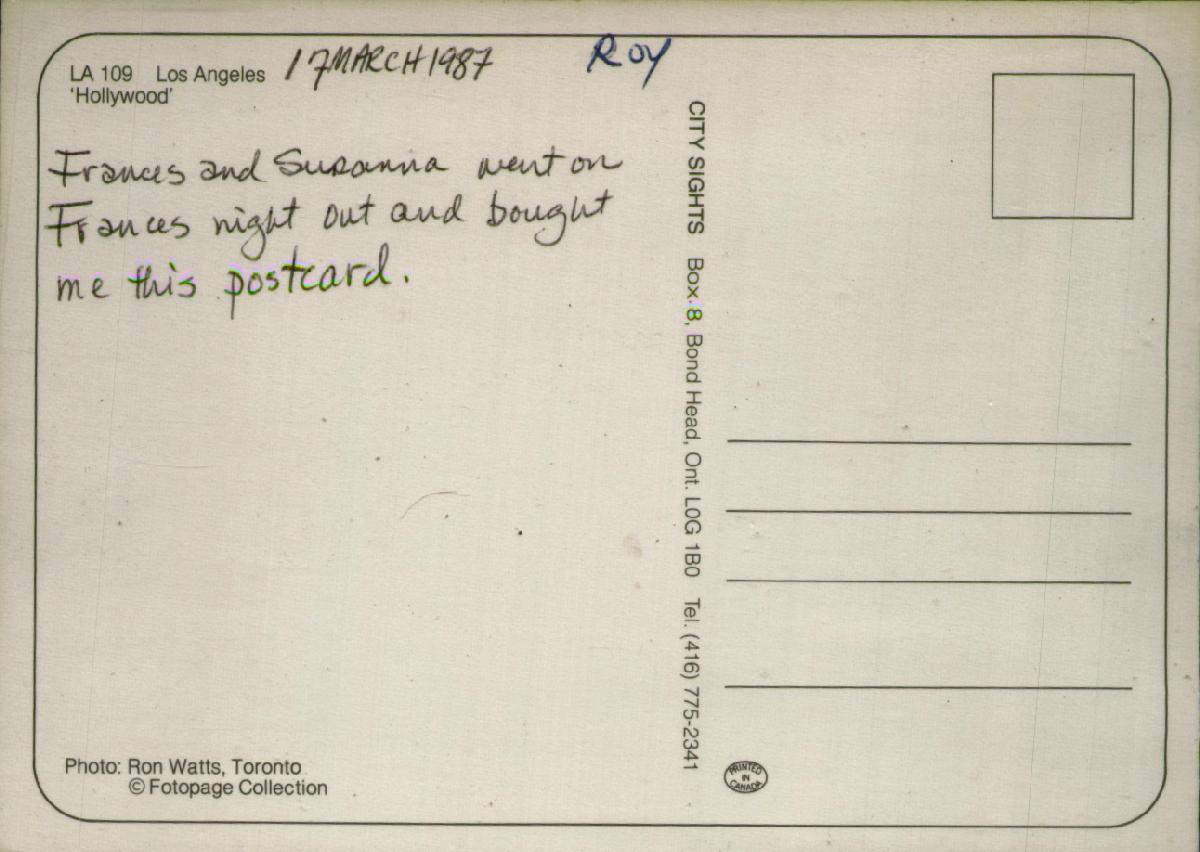 LA 109 Los Angeles
'Hollywood'
17 MARCH 1987
ROY
Frances and Susanna went on
Frances night out and bought
me this postcard.
CITY SIGHTS Box 8, Bond Head, Ont. L0G 1B0 Tel. (416) 775-2341
Photo: Ron Watts, Toronto
© Fotopage Collection
PRINTED
IN
CANADA